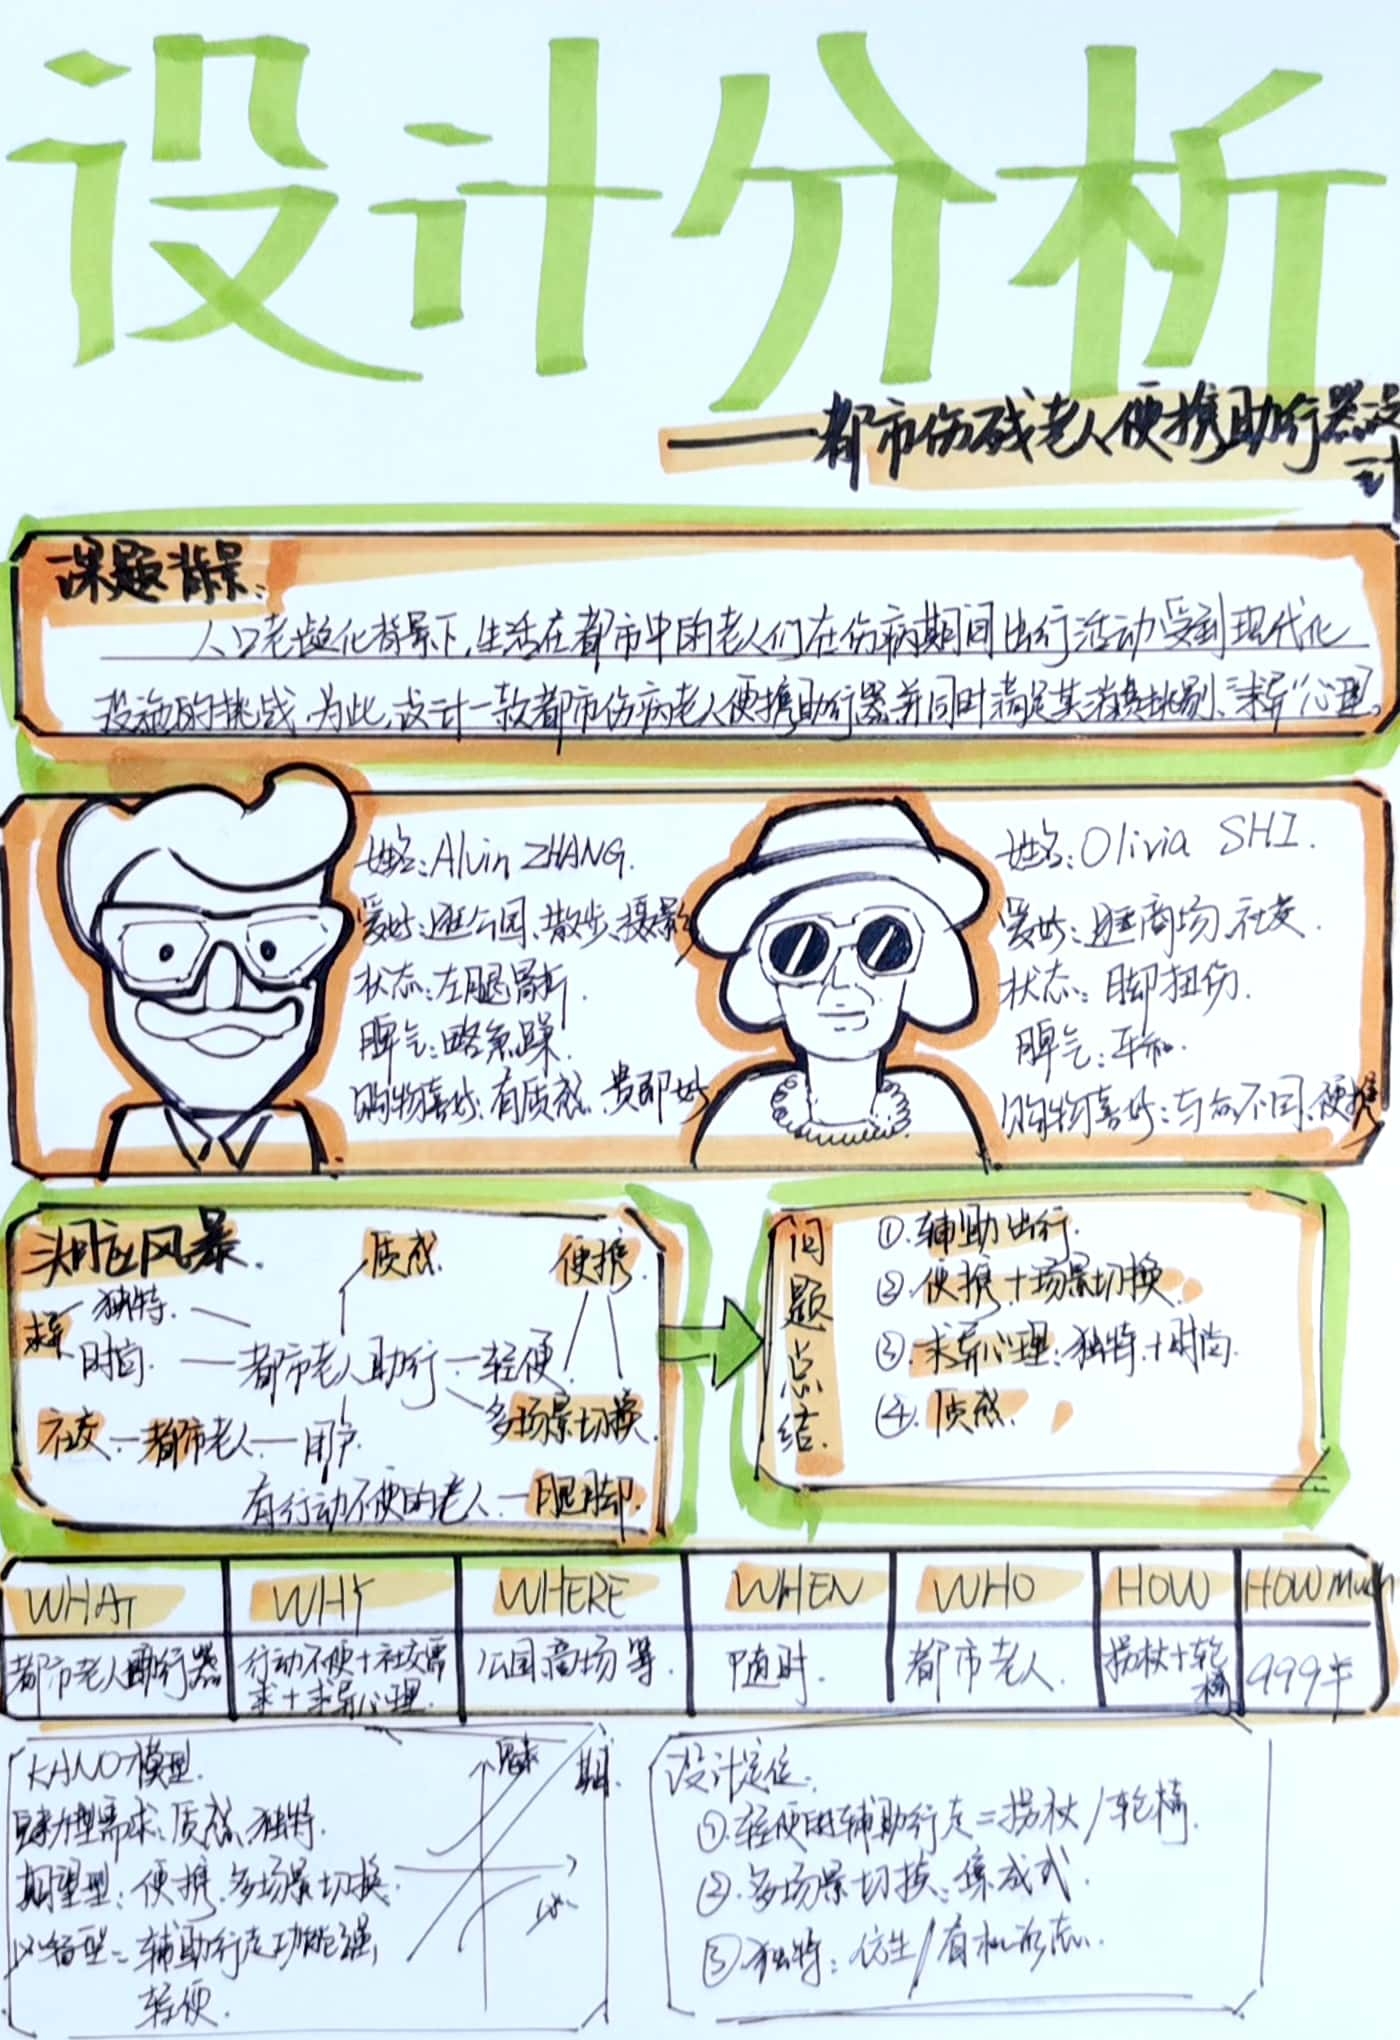 设计分析
——都市伤残老人便携助行器设计
课题背景:
人口老龄化背景下,生活在都市中的老人们在伤病期间出行活动受到现代化
设施的挑战.为此,设计一款都市伤病老人便携助行器并同时满足其消费挑剔、“求异”心理.
姓名:Alvin ZHANG.
爱好:逛公园、散步、摄影
状态:左腿骨折.
脾气:略急躁.
购物喜好:有质感、贵即好
姓名:Olivia SHI.
爱好:逛商场、社交.
状态:脚扭伤.
脾气:平和.
购物喜好:与众不同、便携
头脑风暴.
质感.
便携.
独特.
求异
时尚.
都市老人助行
轻便.
多场景切换.
社交
都市老人
用户.
有行动不便的老人
腿脚.
问题总结.
①.辅助出行.
②.便携+场景切换.
③.求异心理:独特+时尚.
④.质感.
WHAT
WHY
WHERE
WHEN
WHO
HOW
HOW Much
都市老人助行器
行动不便+社交需
求+求异心理.
公园、商场等.
随时.
都市老人.
拐杖+轮
椅
999¥
KANO模型.
魅力型需求:质感、独特.
期望型:便携、多场景切换.
必备型:辅助行走功能强,
轻便.
魅
期.
必.
设计定位:
①.轻便的辅助行走=拐杖/轮椅.
②.多场景切换:集成式.
③.独特:仿生/有机形态.